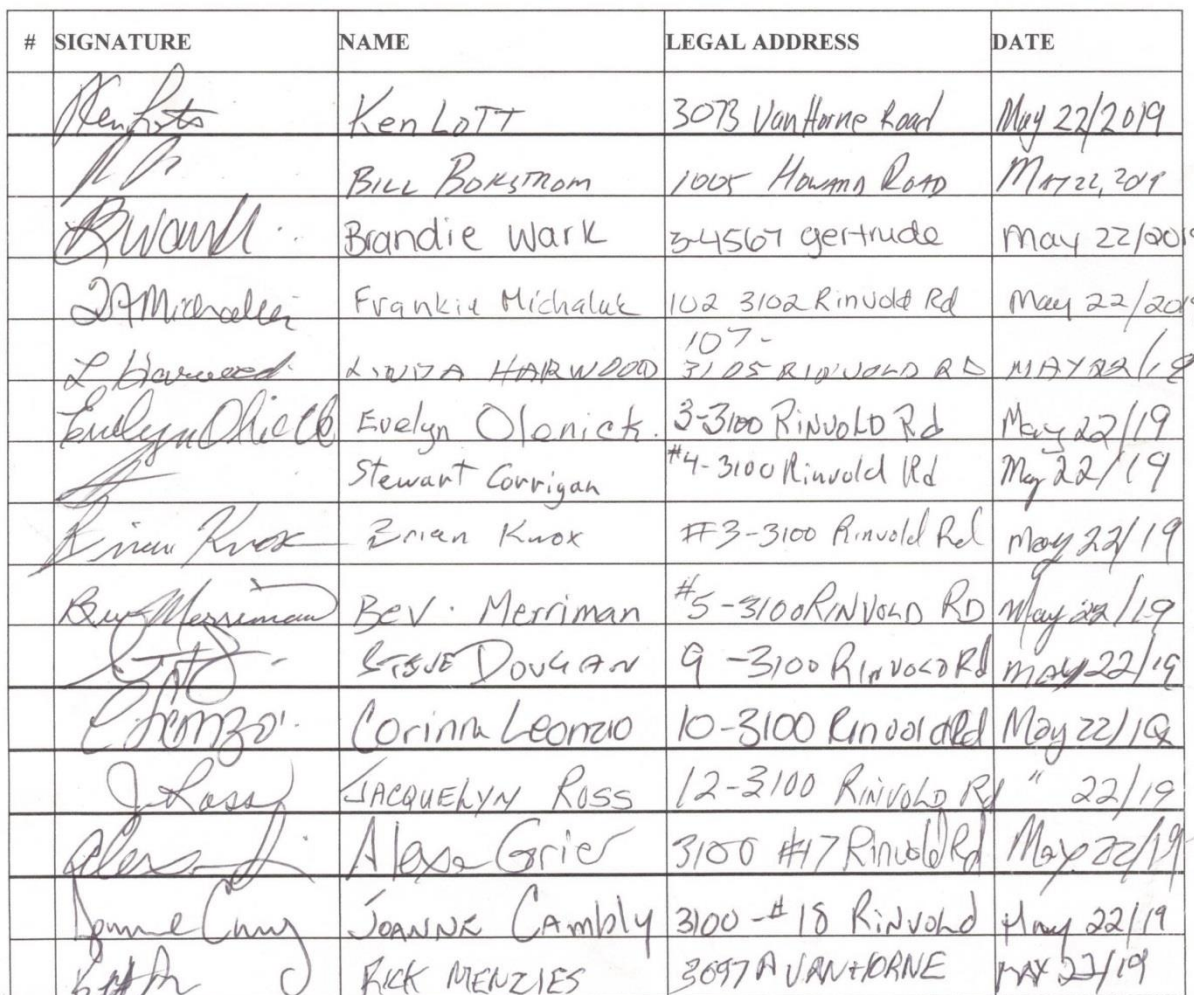 # SIGNATURE NAME LEGAL ADDRESS DATE
Ken Lott 3073 VanHorne Road May 22/2019
BILL BORGSTROM 1005 HOWARD ROAD MAY 22, 2019
Brandie Wark 3-4567 gertrude May 22/2019
Frankie Michaluk 102 3102 Rinvold Rd May 22/2019
107-
L. Harwood LINDA HARWOOD 3105 RINVOLD RD MAY 22/19
Evelyn Olenick. 3-3100 RINVOLD Rd May 22/19
Stewart Corrigan #4-3100 Rinvold Rd May 22/19
Brian Knox Brian Knox #3-3100 Rinvold Rd May 22/19
Bev Merriman BEV. Merriman #5-3100 RINVOLD RD May 22/19
STEVE DOUGAN 9-3100 RINVOLD Rd MAY 22/19
Corinna Leonzio 10-3100 Rinvold Rd May 22/19
J Ross JACQUELYN ROSS 12-3100 RINVOLD Rd " 22/19
Alexa Grier 3100 #17 Rinvold Rd May 22/19
JOANNE CAmbly 3100-#18 RINVOLD May 22/19
RICK MENZIES 3097A VANHORNE MAY 22/19